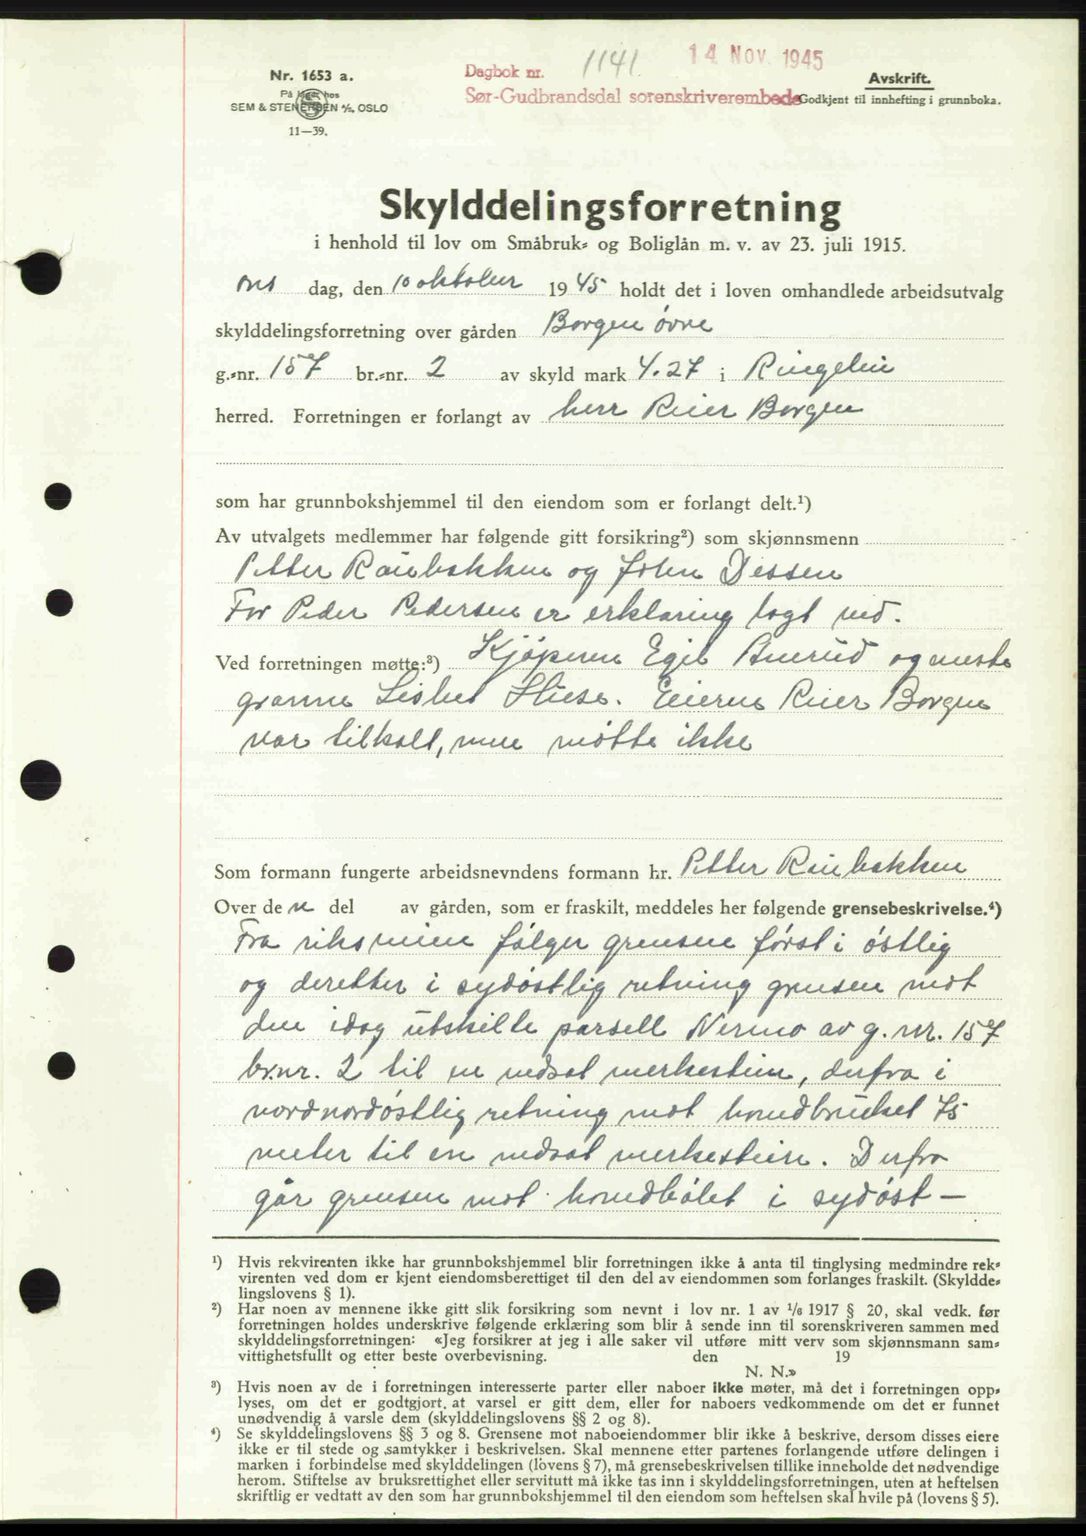 Nr. 1653 a.
På lager hos
SEM & STENERSEN A/S, OSLO
11—39.
Dagbok nr. 1141. 14 NOV. 1945
Sør-Gudbrandsdal sorenskriverembede
Avskrift.
Godkjent til innhefting i grunnboka.
Skylddelingsforretning
i henhold til lov om Småbruk- og Boliglån m. v. av 23. juli 1915.
ons dag, den 10 oktober 1945 holdt det i loven omhandlede arbeidsutvalg
skylddelingsforretning over gården Borgen øvre
g.-nr. 157 br.-nr. 2 av skyld mark 4.27 i Ringebu
herred. Forretningen er forlangt av herr Reier Borgen
som har grunnbokshjemmel til den eiendom som er forlangt delt.¹)
Av utvalgets medlemmer har følgende gitt forsikring²) som skjønnsmenn
Petter Rønbakken og John Dessen
For Peder Pedersen er erklæring lagt ved.
Ved forretningen møtte:³) Kjøperen Egil Amrud og neste
granne Lisbet Stuse. Eieren Reier Borgen
var tilkalt, men møtte ikke
Som formann fungerte arbeidsnevndens formann hr. Petter Rønbakken
Over den del av gården, som er fraskilt, meddeles her følgende grensebeskrivelse.⁴)
Fra riksveien følger grensen først i østlig
og deretter i sydøstlig retning grensen mot
den idag utskilte parsell Nermo av g.nr. 157
br.nr. 2 til en nedsat merkestein, derfra i
nordnordøstlig retning mot hovedbruket 75
meter til en nedsat merkestein. Derfra
går grensen mot hovedbølet i sydøst—
¹) Hvis rekvirenten ikke har grunnbokshjemmel blir forretningen ikke å anta til tinglysing medmindre rek-
virenten ved dom er kjent eiendomsberettiget til den del av eiendommen som forlanges fraskilt. (Skyldde-
lingslovens § 1).
²) Har noen av mennene ikke gitt slik forsikring som nevnt i lov nr. 1 av 1/6 1917 § 20, skal vedk. før
forretningen holdes underskrive følgende erklæring som blir å sende inn til sorenskriveren sammen med
skylddelingsforretningen: «Jeg forsikrer at jeg i alle saker vil utføre mitt verv som skjønnsmann sam-
vittighetsfullt og etter beste overbevisning. den 19
N. N.»
³) Hvis noen av de i forretningen interesserte parter eller naboer ikke møter, må det i forretningen opp-
lyses, om det er godtgjort at varsel er gitt dem, eller for naboers vedkommende om det er funnet
unødvendig å varsle dem (skylddelingslovens §§ 2 og 8).
⁴) Se skylddelingslovens §§ 3 og 8. Grensene mot naboeiendommer blir ikke å beskrive, dersom disses eiere
ikke er til stede og samtykker i beskrivelsen. Skal mennene etter partenes forlangende utføre delingen i
marken i forbindelse med skylddelingen (lovens § 7), må grensebeskrivelsen tillike inneholde det nødvendige
herom. Stiftelse av bruksrettighet eller servitutt må ikke tas inn i skylddelingsforretningen, uten at heftelsen
skriftlig er vedtatt av den som har grunnbokshjemmel til den eiendom som heftelsen skal hvile på (lovens § 5).